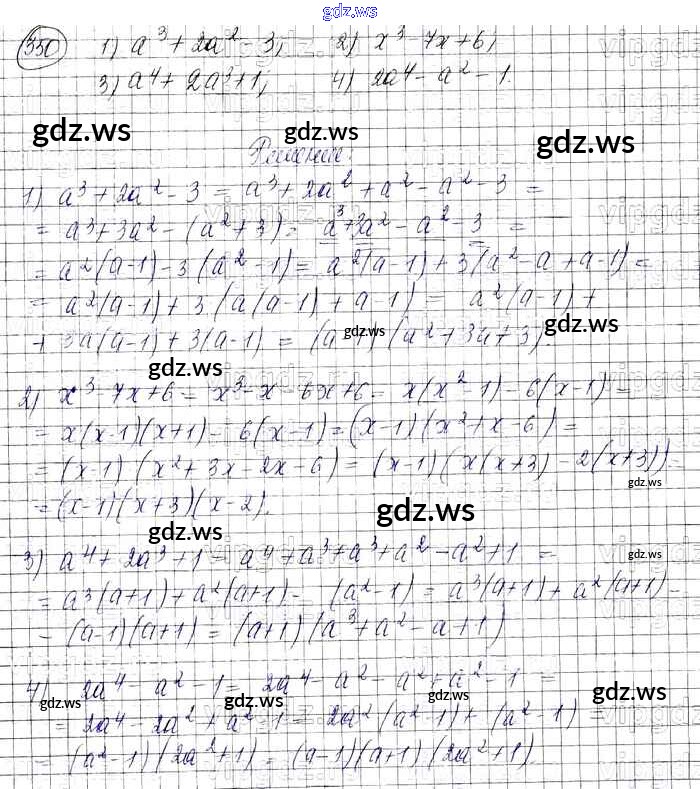 gdz.ws
350 1) a³ + 2a² - 3; 2) x³ - 7x + 6;
3) a⁴ + 2a³ + 1; 4) 2a⁴ - a² - 1.
gdz.ws gdz.ws gdz.ws
Решение:
1) a³ + 2a² - 3 = a³ + 2a² + a² - a² - 3 =
= a³ + 3a² - (a² + 3) = a³ + 3a² - a² - 3 =
= a²(a-1) - 3(a² - 1) = a²(a-1) + 3(a² - a + a - 1) =
= a²(a-1) + 3(a(a-1) + a-1) = a²(a-1) +
+ 3a(a-1) + 3(a-1) = (a-1)(a² + 3a + 3)
gdz.ws gdz.ws gdz.ws
2) x³ - 7x + 6 = x³ - x - 6x + 6 = x(x² - 1) - 6(x-1) =
= x(x-1)(x+1) - 6(x-1) = (x-1)(x² + x - 6) =
= (x-1)(x² + 3x - 2x - 6) = (x-1)(x(x+3) - 2(x+3))
gdz.ws
= (x-1)(x+3)(x-2).
gdz.ws gdz.ws
3) a⁴ + 2a³ + 1 = a⁴ + a³ + a³ + a² - a² + 1 =
gdz.ws
= a³(a+1) + a²(a+1) - (a² - 1) = a³(a+1) + a²(a+1) -
- (a-1)(a+1) = (a+1)(a³ + a² - a + 1)
4) 2a⁴ - a² - 1 = 2a⁴ - a² - a² + a² - 1 =
gdz.ws gdz.ws gdz.ws gdz.ws
= 2a⁴ - 2a² + a² - 1 = 2a²(a² - 1) + (a² - 1) =
= (a² - 1)(2a² + 1) = (a-1)(a+1)(2a² + 1).
gdz.ws gdz.ws